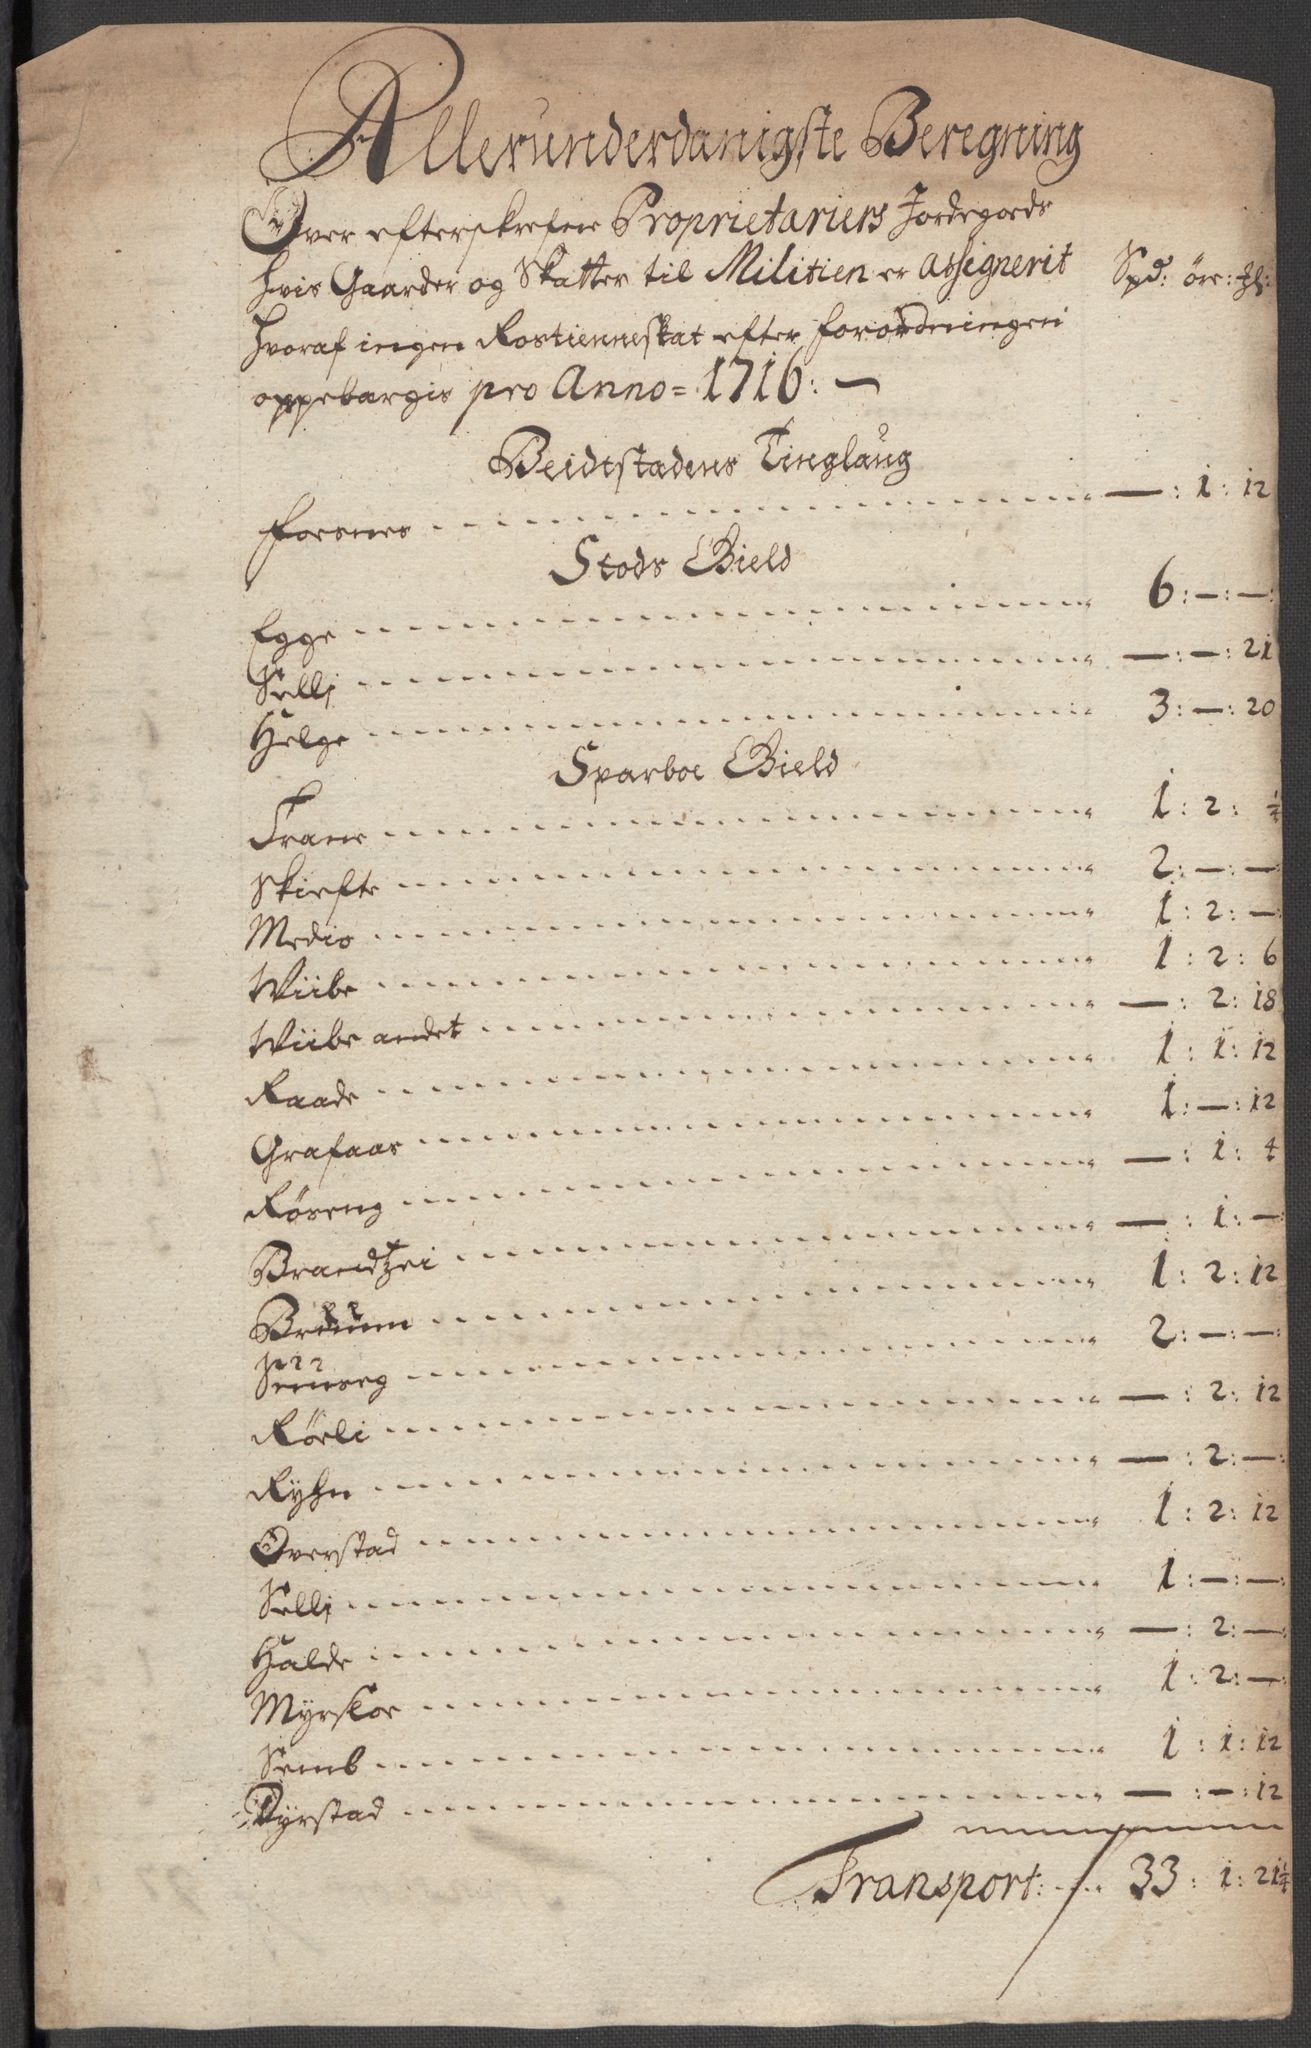 Allerunderdanigste Beregning
Over efterskrefne Proprietariers Jordegoeds
hvis Gaarder og Skatter til Militien er assignerit Spd: öre: Ml:
hvoraf ingen Rostienneskat efter forordningen
oppebærgis pro Anno = 1716: —
Beidtstadens Tinglaug
Forsnes — : 1 : 12
Stods Gield
Egge 6 : — : —
Selli — : — : 21
Helge 3 : — : 20
Sparboe Gield
Trane 1 : 2 : 1/4
Skiefte 2 : — : —
Medio 1 : 2 : —
Wiibe 1 : 2 : 6
Wiibe andet — : 2 : 18
Raade 1 : 1 : 12
Grafaas 1 : — : 12
Röseng — : 1 : 4
Brandtzei — : 1 : —
Bruum 1 : 2 : 12
2 : — : —
Rörli — : 2 : 12
Ryhn — : 2 : —
Overstad 1 : 2 : 12
Selli 1 : — : —
Halde — : 2 : —
Myrskoe 1 : 2 : —
Semb 1 : 1 : 12
Dyrstad — : — : 12
Transport: 33 : 1 : 21 1/4